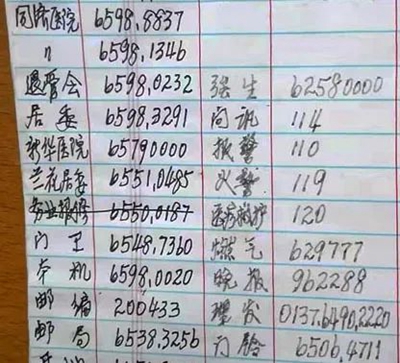 同济医院 6598.8837
〃 6598.1346
退管会 6598.0232 强生 62580000
居委 6598.3291 问讯 114
新华医院 65790000 报警 110
兰花居委 6551.0485 火警 119
物业报修 6550.0187 医疗救护 120
门卫 6548.7360 燃气 629777
本机 6598.0020 晚报 962288
邮编 200433 理发 0137.6490.2220
邮局 6538.3256 门铃 6506.4711